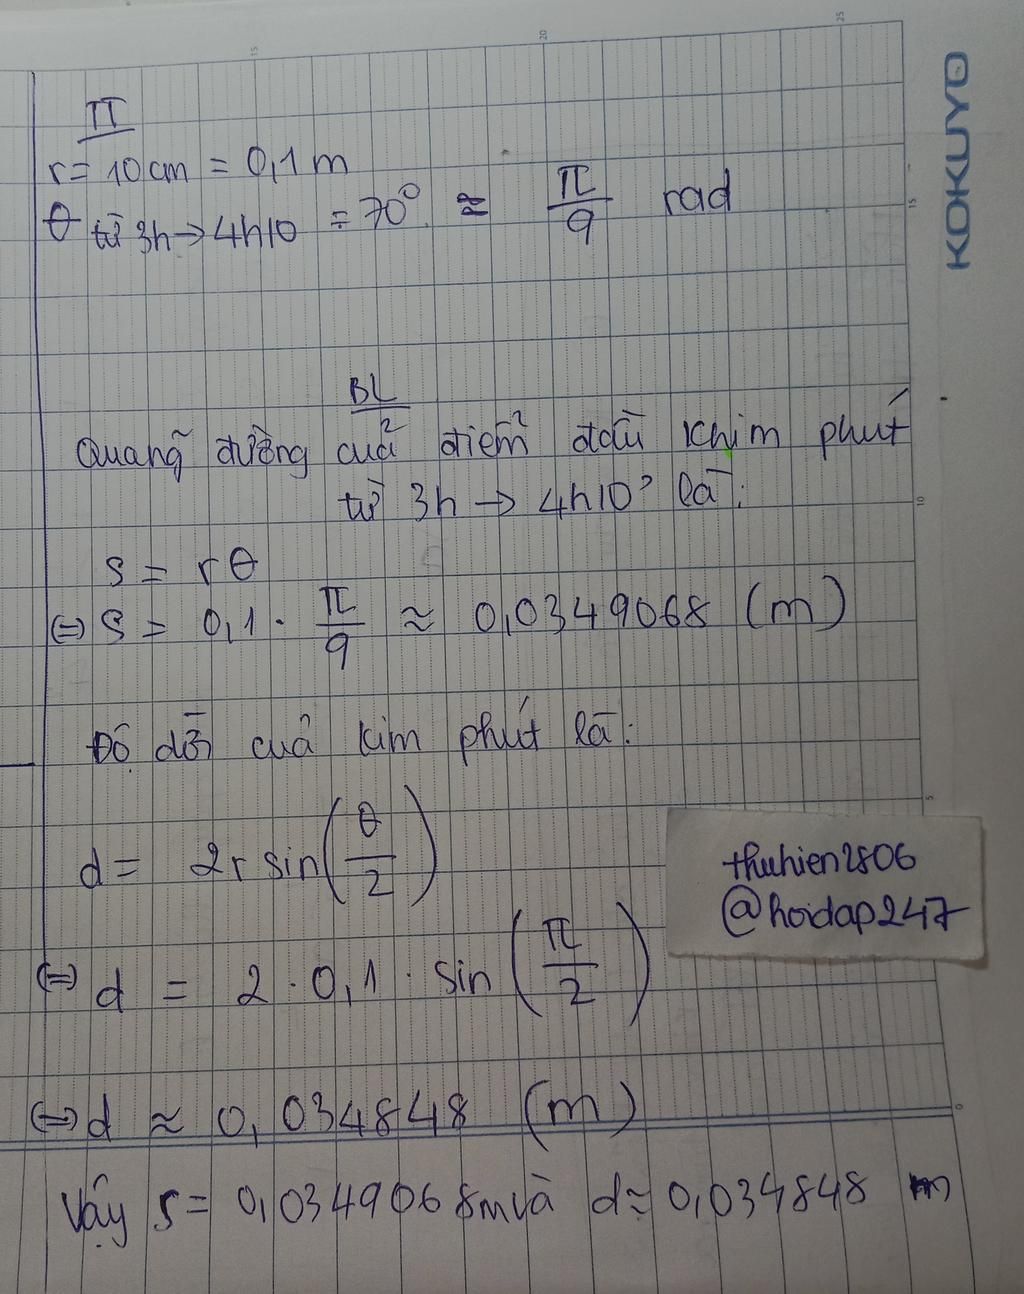 TT
r = 10 cm = 0,1 m
θ từ 3h → 4h10 = 70° ≈ π/9 rad
BL
Quãng đường của điểm đầu khim phút
từ 3h → 4h10' là:
S = rθ
(=) S = 0,1 . π/9 ≈ 0,0349068 (m)
Độ dời của kim phút là:
d = 2r sin(θ/2)
(=) d = 2 . 0,1 . sin(π/2)
(=) d ≈ 0,034848 (m)
Vậy S = 0,0349068m và d ≈ 0,034848 m
thuhien2806
@hoidap247
KOKUYO
15
20
25
15
10
5
0